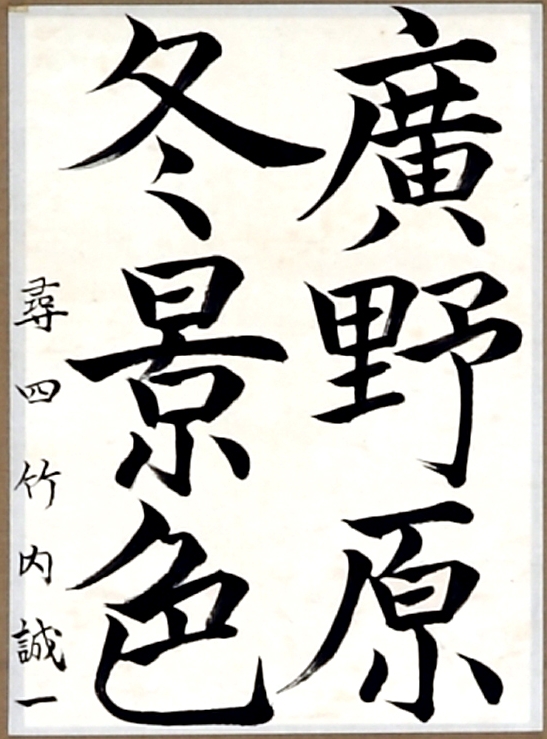 廣野原
冬景色
尋四 竹内誠一